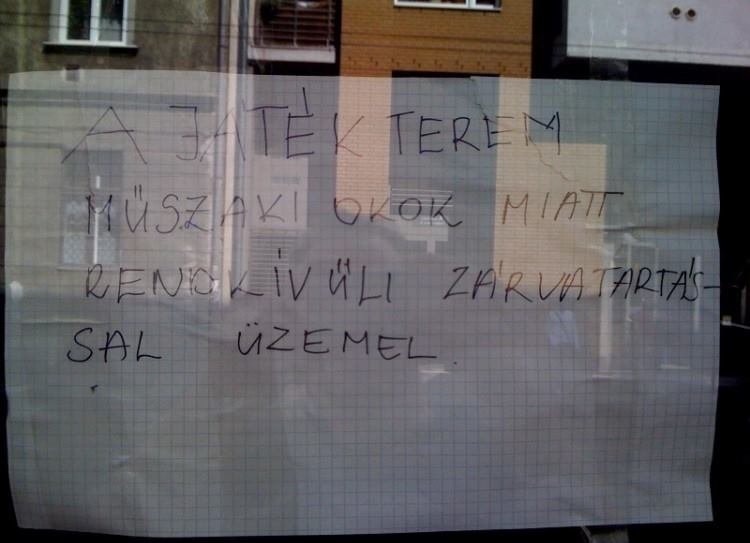 A JÁTÉK TEREM
MŰSZAKI OKOK MIATT
RENDKÍVÜLI ZÁRVATARTÁS-
SAL ÜZEMEL.